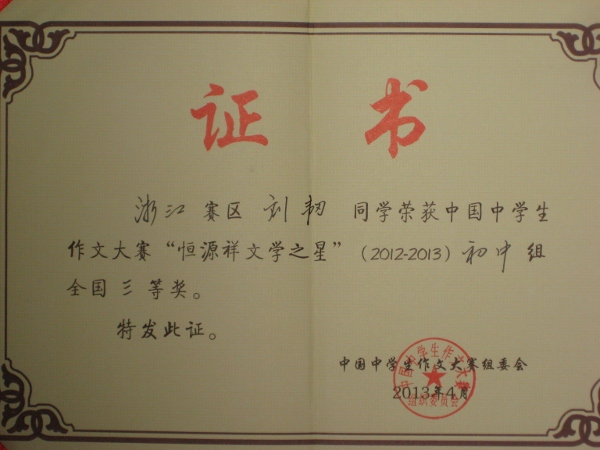 证书
浙江 赛区 刘韧 同学荣获中国中学生
作文大赛“恒源祥文学之星”（2012-2013）初中 组
全国 三 等奖。
特发此证。
中国中学生作文大赛组委会
2013年4月
中国中学生作文大赛
组织委员会